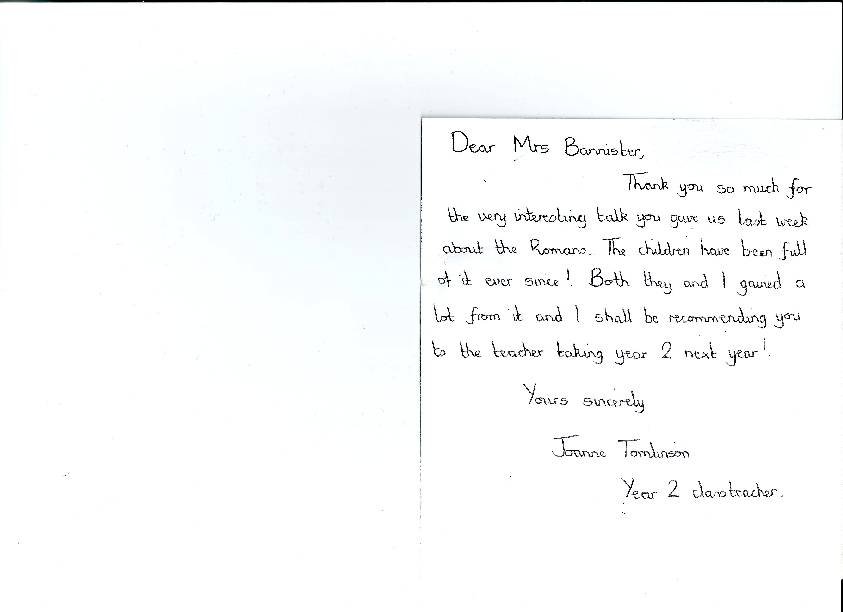 Dear Mrs Bannister,
Thank you so much for
the very interesting talk you gave us last week
about the Romans. The children have been full
of it ever since! Both they and I gained a
lot from it and I shall be recommending you
to the teacher taking year 2 next year!
Yours sincerely
Joanne Tomlinson
Year 2 classteacher.